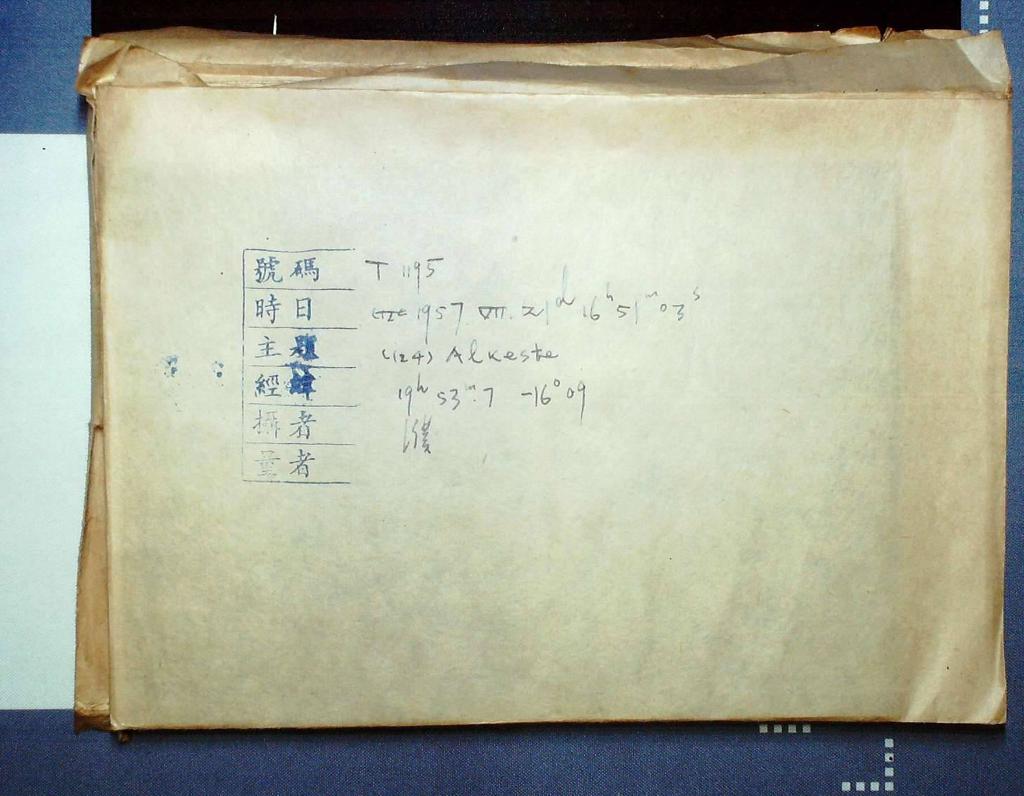 號碼 T 1195
時日 1957 VII. 21ᵈ 16ʰ 51ᵐ 03ˢ
主題 (124) Alkeste
經緯 19ʰ 53ᵐ.7 -16°09
攝者
量者